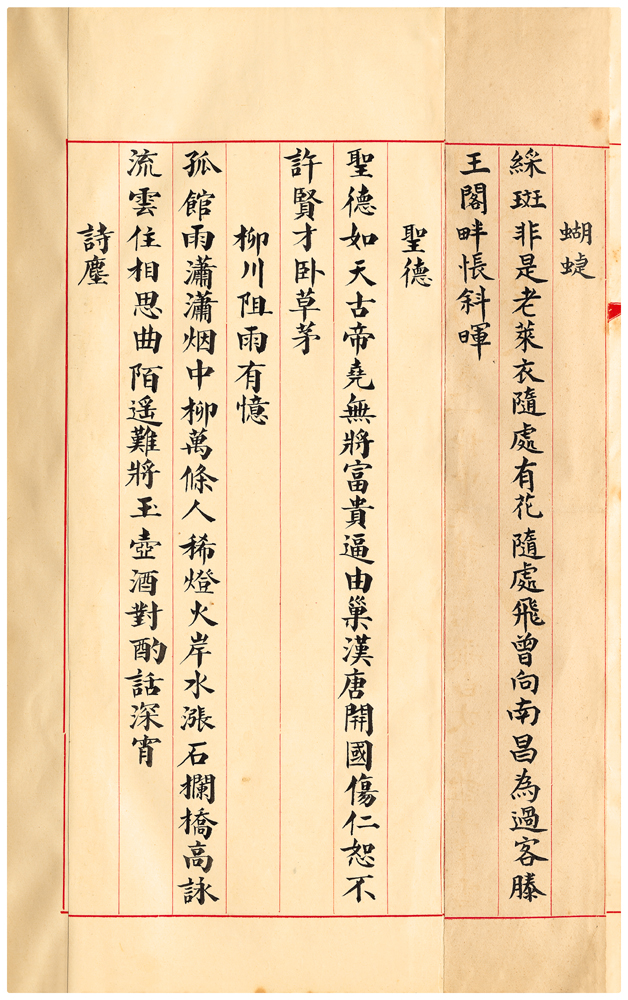 蝴蝶
綵斑非是老萊衣隨處有花隨處飛曾向南昌為過客滕
王閣畔悵斜暉
聖德
聖德如天古帝堯無將富貴逼由巢漢唐開國傷仁恕不
許賢才卧草茅
柳川阻雨有憶
孤館雨瀟瀟烟中柳萬條人稀燈火岸水漲石攔橋高詠
流雲住相思曲陌遥難將玉壺酒對酌話深宵
詩塵